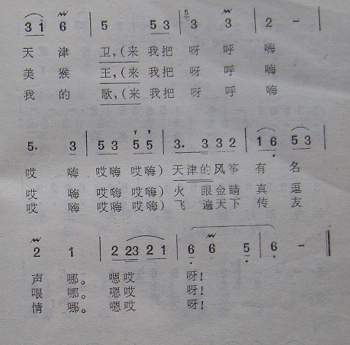 3 1 6 | 5 5 3 | 3 3 | 2 - |
天 津 卫,(来 我把 呀 呼 嗨
美 猴 王,(来 我把 呀 呼 嗨
我 的 歌,(来 我把 呀 呼 嗨
5. 3 | 5 3 5 5 | 3. 3 3 2 | 1 6 5 3 |
哎 嗨 哎嗨 哎嗨) 天津的风筝 有 名
哎 嗨 哎嗨 哎嗨) 火 眼金睛 真 逗
哎 嗨 哎嗨 哎嗨) 飞 遍天下 传 友
2 1 | 2 23 2 1 | 6 6 5 | 6 - ‖
声 哪。 嗯哎 呀!
哏 哪。 嗯哎 呀!
情 哪。 嗯哎 呀!